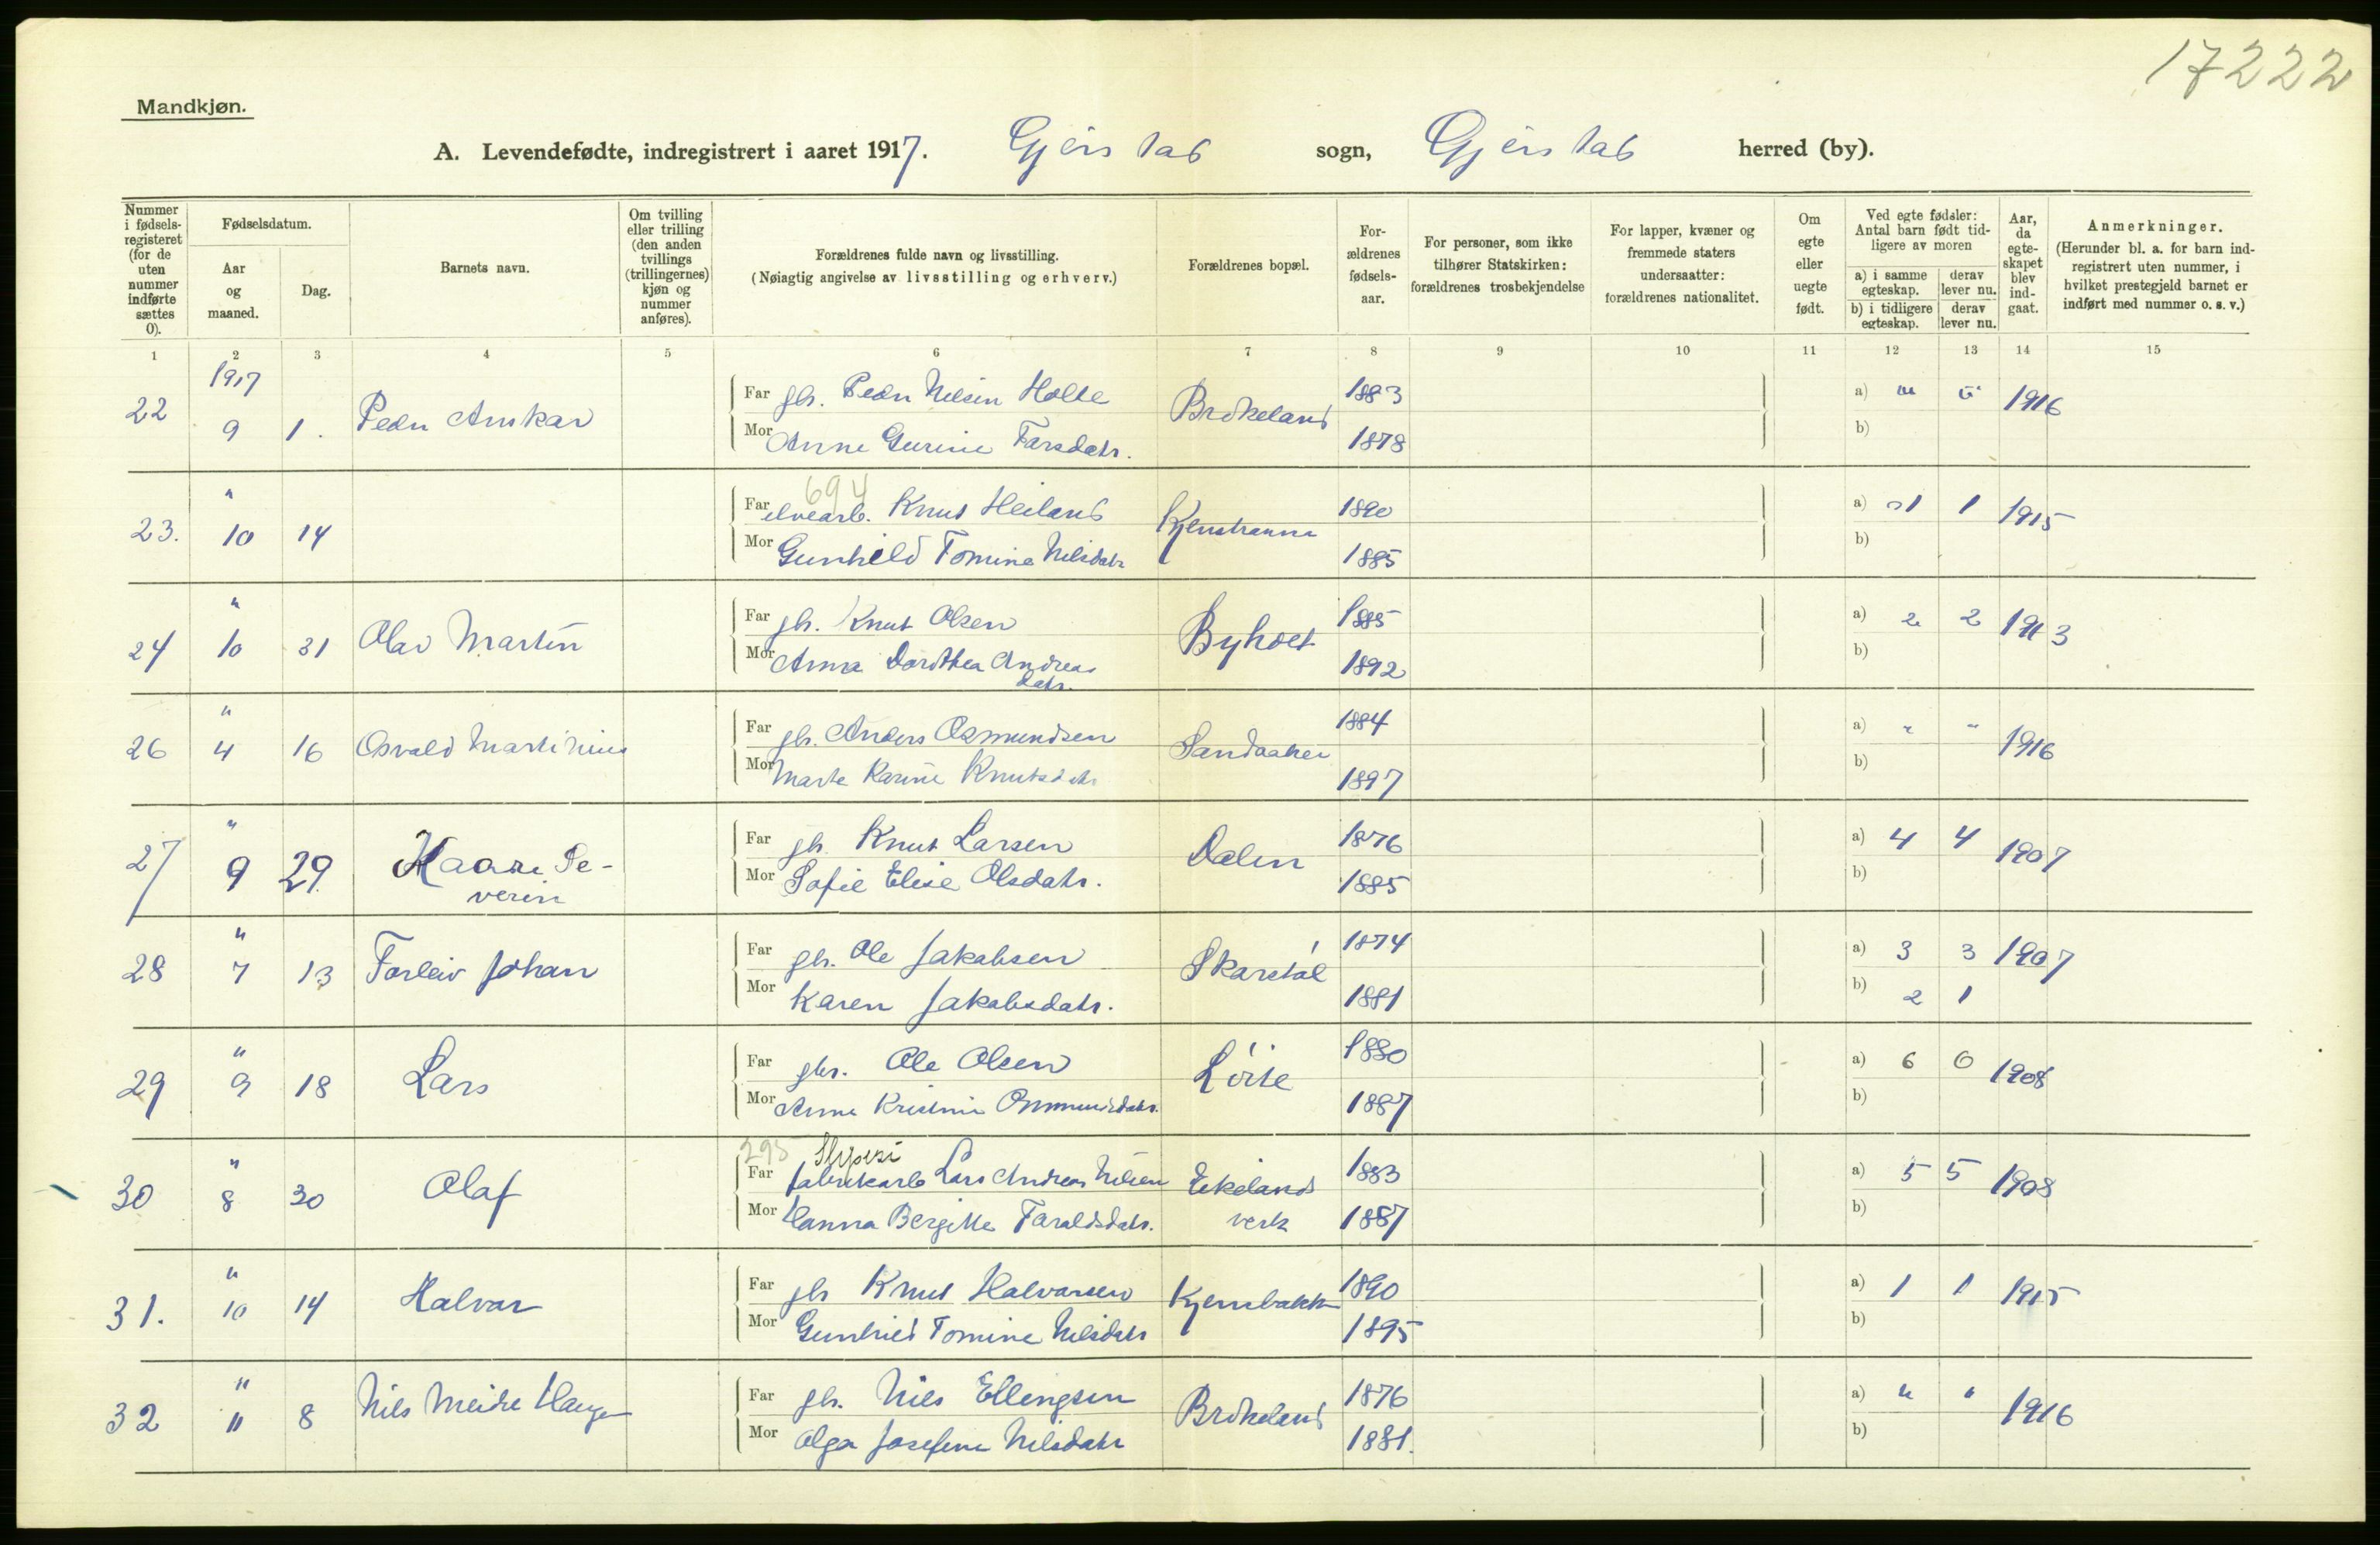 17222
Mandkjøn.
A. Levendefødte, indregistrert i aaret 1917. Gjerstad sogn, Gjerstad herred (by).
Nummer i fødsels-registeret (for de uten nummer indførte sættes 0).
Fødselsdatum.
Aar og maaned.
Dag.
Barnets navn.
Om tvilling eller trilling (den anden tvillings (trillingernes) kjøn og nummer anføres).
Forældrenes fulde navn og livsstilling.
(Nøiagtig angivelse av livsstilling og erhverv.)
Forældrenes bopæl.
For-ældrenes fødsels-aar.
For personer, som ikke tilhører Statskirken: forældrenes trosbekjendelse
For lapper, kvæner og fremmede staters undersaatter: forældrenes nationalitet.
Om egte eller uegte født.
Ved egte fødsler: Antal barn født tid-ligere av moren
a) i samme egteskap. derav lever nu.
b) i tidligere egteskap. derav lever nu.
Aar, da egte-skapet blev ind-gaat.
Anmerkninger.
(Herunder bl. a. for barn ind-registrert uten nummer, i hvilket prestegjeld barnet er indført med nummer o. s. v.)
1 2 3 4 5 6 7 8 9 10 11 12 13 14 15
1917
22 9 1. Peder Far gbr. Peder Nelsen Holte Brokeland 1883 a) " " 1916
Mor Anne Gurine Tarsdatr. 1878 b)
694
23. " 10 14 Far elvearb. Knut Heiland 1890 a) 1 1 1915
Mor Gunhild Tomine Nilsdatr 1885 b)
24 " 10 31 Olav Martin Far gbr. Knut Olsen Byholt 1885 a) 2 2 1913
Mor Anna Dorthea Andreas datr. 1892 b)
26 " 4 16 Osvald Martinius Far gbr. Anders Osmundsen Sandaaker 1884 a) " " 1916
Mor Marte Karine Knutsdatr 1897 b)
27 " 9 29 Kaare Se-verin Far gbr Knut Larsen Dalen 1876 a) 4 4 1907
Mor Sofie Elise Olsdatr. 1885 b)
28 " 7 13 Torleiv Johan Far gbr. Ole Jakobsen Skarstøl 1874 a) 3 3 1907
Mor Karen Jakobsdatr. 1881 b) 2 1
29 " 9 18 Lars Far gbr. Ole Olsen 1880 a) 6 6 1908
Mor Anne Kristine Osmundsdatr. 1887 b)
295 Sliperi
30 " 8 30 Olaf Far fabrikarb Lars Andreas Nilsen Eikelands 1883 a) 5 5 1908
Mor Hanna Bergitte Taraldsdatr. verk 1887 b)
31. " 10 14 Halvor Far gbr Knut Halvorsen Kjernbakk 1890 a) 1 1 1915
Mor Gunhild Tomine Nilsdatr 1895 b)
32 " " 8 Nils Meidel Haugen Far gbr. Nils Ellengsen Brokeland 1876 a) " " 1916
Mor Olga Josefine Nilsdatr 1881. b)